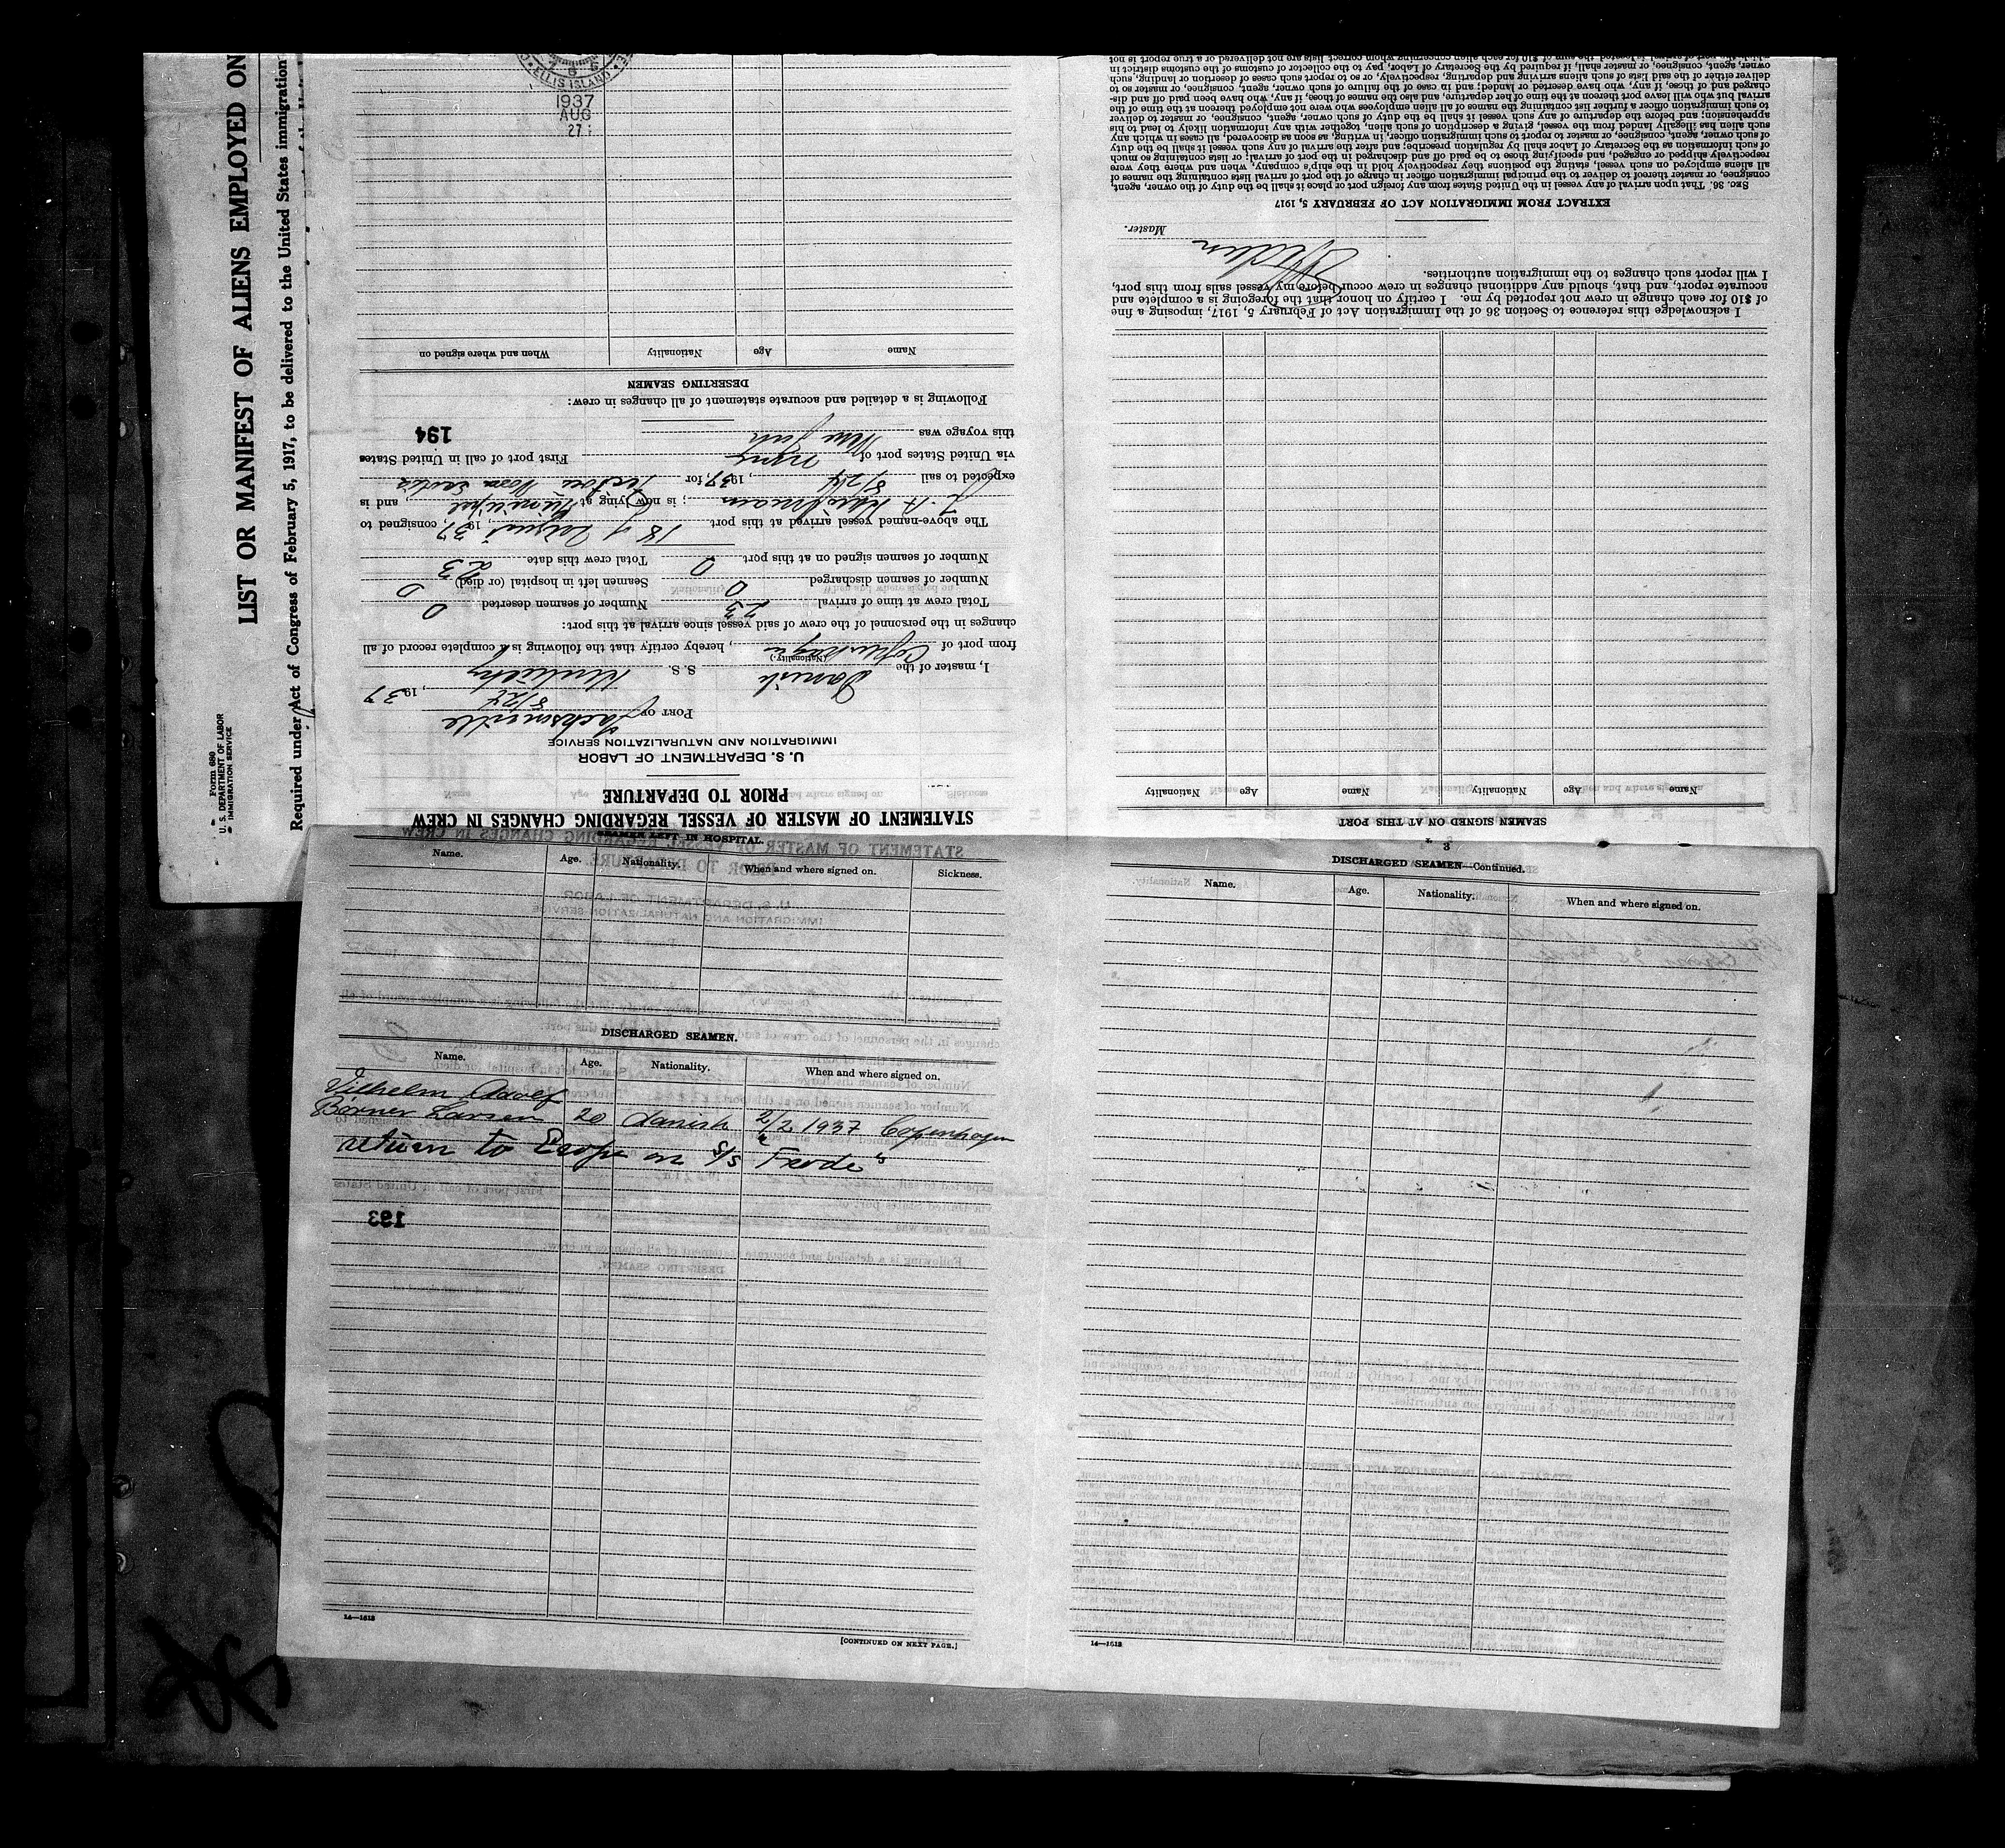 LIST OR MANIFEST OF ALIENS EMPLOYED ON
Required under Act of Congress of February 5, 1917, to be delivered to the United States immigration
Form 680
U. S. DEPARTMENT OF LABOR
IMMIGRATION SERVICE
ELLIS ISLAND
1937
AUG
27
STATEMENT OF MASTER OF VESSEL REGARDING CHANGES IN CREW
PRIOR TO DEPARTURE
U. S. DEPARTMENT OF LABOR
IMMIGRATION AND NATURALIZATION SERVICE
PORT OF Jacksonville
8/24, 1937
I, master of the Danish S. S. Kentucky
(Nationality)
from port of Copenhagen, hereby certify that the following is a complete record of all
changes in the personnel of the crew of said vessel since arrival at this port:
Total crew at time of arrival 23 Number of seamen deserted 0
Number of seamen discharged 0 Seamen left in hospital (or died) 0
Number of seamen signed on at this port 0 Total crew this date 23
The above-named vessel arrived at this port 18 August, 1937, consigned to
; is now lying at Municipal, and is
expected to sail 8/24, 1937, for
via United States port of First port of call in United States
this voyage was New York
194
Following is a detailed and accurate statement of all changes in crew:
DESERTING SEAMEN
Name Age Nationality When and where signed on
SEAMEN SIGNED ON AT THIS PORT
Name Age Nationality Name Age Nationality
I acknowledge this reference to Section 36 of the Immigration Act of February 5, 1917, imposing a fine
of $10 for each change in crew not reported by me. I certify on honor that the foregoing is a complete and
accurate report, and that, should any additional changes in crew occur before my vessel sails from this port,
I will report such changes to the immigration authorities.
Master.
EXTRACT FROM IMMIGRATION ACT OF FEBRUARY 5, 1917
SEC. 36. That upon arrival of any vessel in the United States from any foreign port or place it shall be the duty of the owner, agent,
consignee, or master thereof to deliver to the principal immigration officer in charge of the port of arrival lists containing the names of
all aliens employed on such vessel, stating the positions they respectively hold in the ship's company, when and where they were
respectively shipped or engaged, and specifying those to be paid off and discharged in the port of arrival; or lists containing so much
of such information as the Secretary of Labor shall by regulation prescribe; and after the arrival of any such vessel it shall be the duty
of such owner, agent, consignee, or master to report to such immigration officer, in writing, as soon as discovered, all cases in which any
such alien has illegally landed from the vessel, giving a description of such alien, together with any information likely to lead to his
apprehension; and before the departure of any such vessel it shall be the duty of such owner, agent, consignee, or master to deliver
to such immigration officer a further list containing the names of all alien employees who were not employed thereon at the time of the
arrival but who will leave port thereon at the time of her departure, and also the names of those, if any, who have been paid off and dis-
charged and of those, if any, who have deserted or landed; and in case of the failure of such owner, agent, consignee, or master so to
deliver either of the said lists of such aliens arriving and departing, respectively, or so to report such cases of desertion or landing, such
owner, agent, consignee, or master shall, if required by the Secretary of Labor, pay to the collector of customs of the customs district in
SEAMEN LEFT IN HOSPITAL.
Name. Age. Nationality. When and where signed on. Sickness.
DISCHARGED SEAMEN.
Name. Age. Nationality. When and where signed on.
Vilhelm Adolf
Børner Larsen 20 danish 2/2 1937 Copenhagen
return to Europe on S/S "Frode"
193
14—1613
[CONTINUED ON NEXT PAGE.]
3
DISCHARGED SEAMEN—Continued.
Name. Age. Nationality. When and where signed on.
14—1613